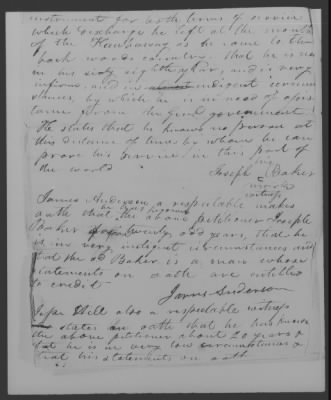 instrument for both terms of service
which discharge he left at the mouth
of the Kanhaway as he came to this
back woods country. That he is now
in his sixty eighth year, and is very
infirm, and in indigent circum
stances, by which he is in need of assis
tance from the Genl government.
He states that he knows no person at
this distance of time by whom he can
prove his service in this part of
the world
his
Joseph X Baker
mark
James Anderson, a respectable makes
oath that he has known the above petitioner Joseph
Baker twenty odd years, that he
is in very indigent circumstances and
that the sd Baker is a man whose
statements on oath are entitled
to credit.
James Anderson
Hill also a respectable witness
states on oath that he has known
the above petitioner about 20 years &
that he is in very low circumstances &
that his statements on oath